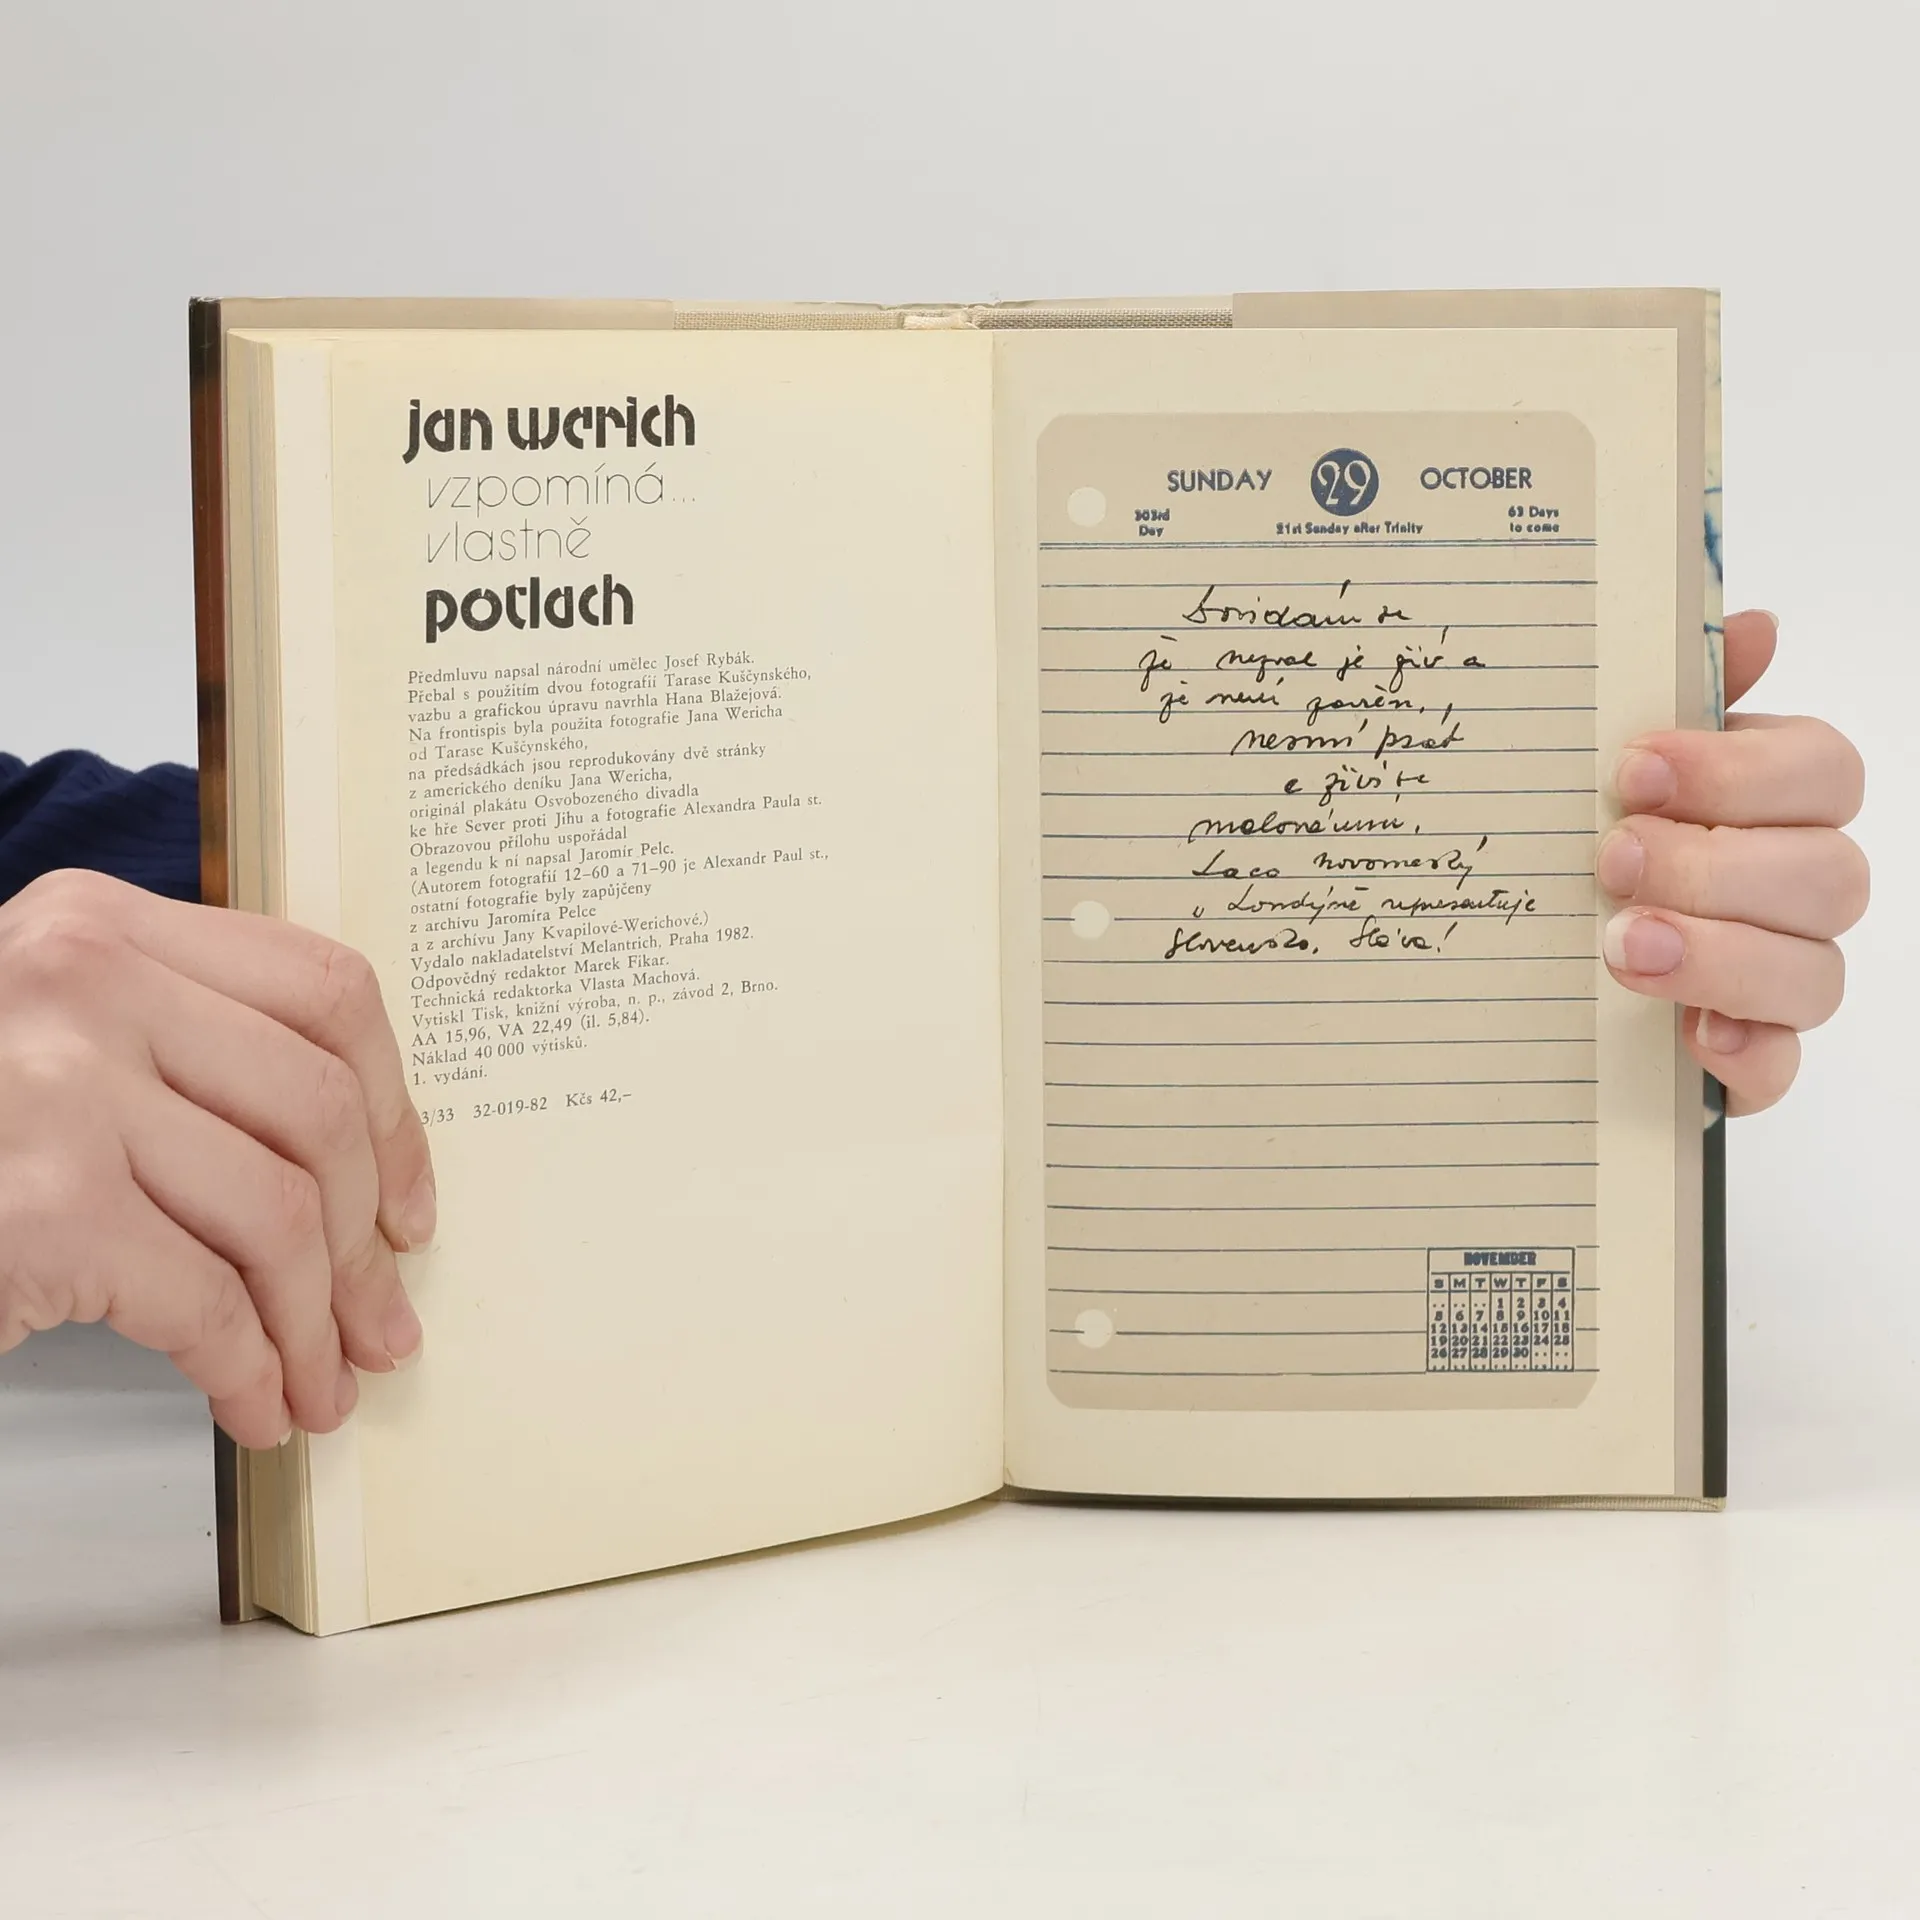 jan werich
vzpomíná...
vlastně
potlach
Předmluvu napsal národní umělec Josef Rybák.
Přebal s použitím dvou fotografií Tarase Kuščynského,
vazbu a grafickou úpravu navrhla Hana Blažejová.
Na frontispis byla použita fotografie Jana Wericha
od Tarase Kuščynského,
na předsádkách jsou reprodukovány dvě stránky
z amerického deníku Jana Wericha,
originál plakátu Osvobozeného divadla
ke hře Sever proti Jihu a fotografie Alexandra Paula st.
Obrazovou přílohu uspořádal
a legendu k ní napsal Jaromír Pelc.
(Autorem fotografií 12–60 a 71–90 je Alexandr Paul st.,
ostatní fotografie byly zapůjčeny
z archívu Jaromíra Pelce
a z archívu Jany Kvapilové-Werichové.)
Vydalo nakladatelství Melantrich, Praha 1982.
Odpovědný redaktor Marek Fikar.
Technická redaktorka Vlasta Machová.
Vytiskl Tisk, knižní výroba, n. p., závod 2, Brno.
AA 15,96, VA 22,49 (il. 5,84).
Náklad 40 000 výtisků.
1. vydání.
3/33 32-019-82 Kčs 42,–
SUNDAY 29 OCTOBER
303rd Day 21st Sunday after Trinity 63 Days to come
Dovídám se
že nezval je živ a
že není zavřen,
nesmí psát
a živí se
malováním.
Laco Novomeský
v Londýně representuje
Slovensko. Sláva!
NOVEMBER
S M T W T F S
.. .. .. 1 2 3 4
5 6 7 8 9 10 11
12 13 14 15 16 17 18
19 20 21 22 23 24 25
26 27 28 29 30 .. ..